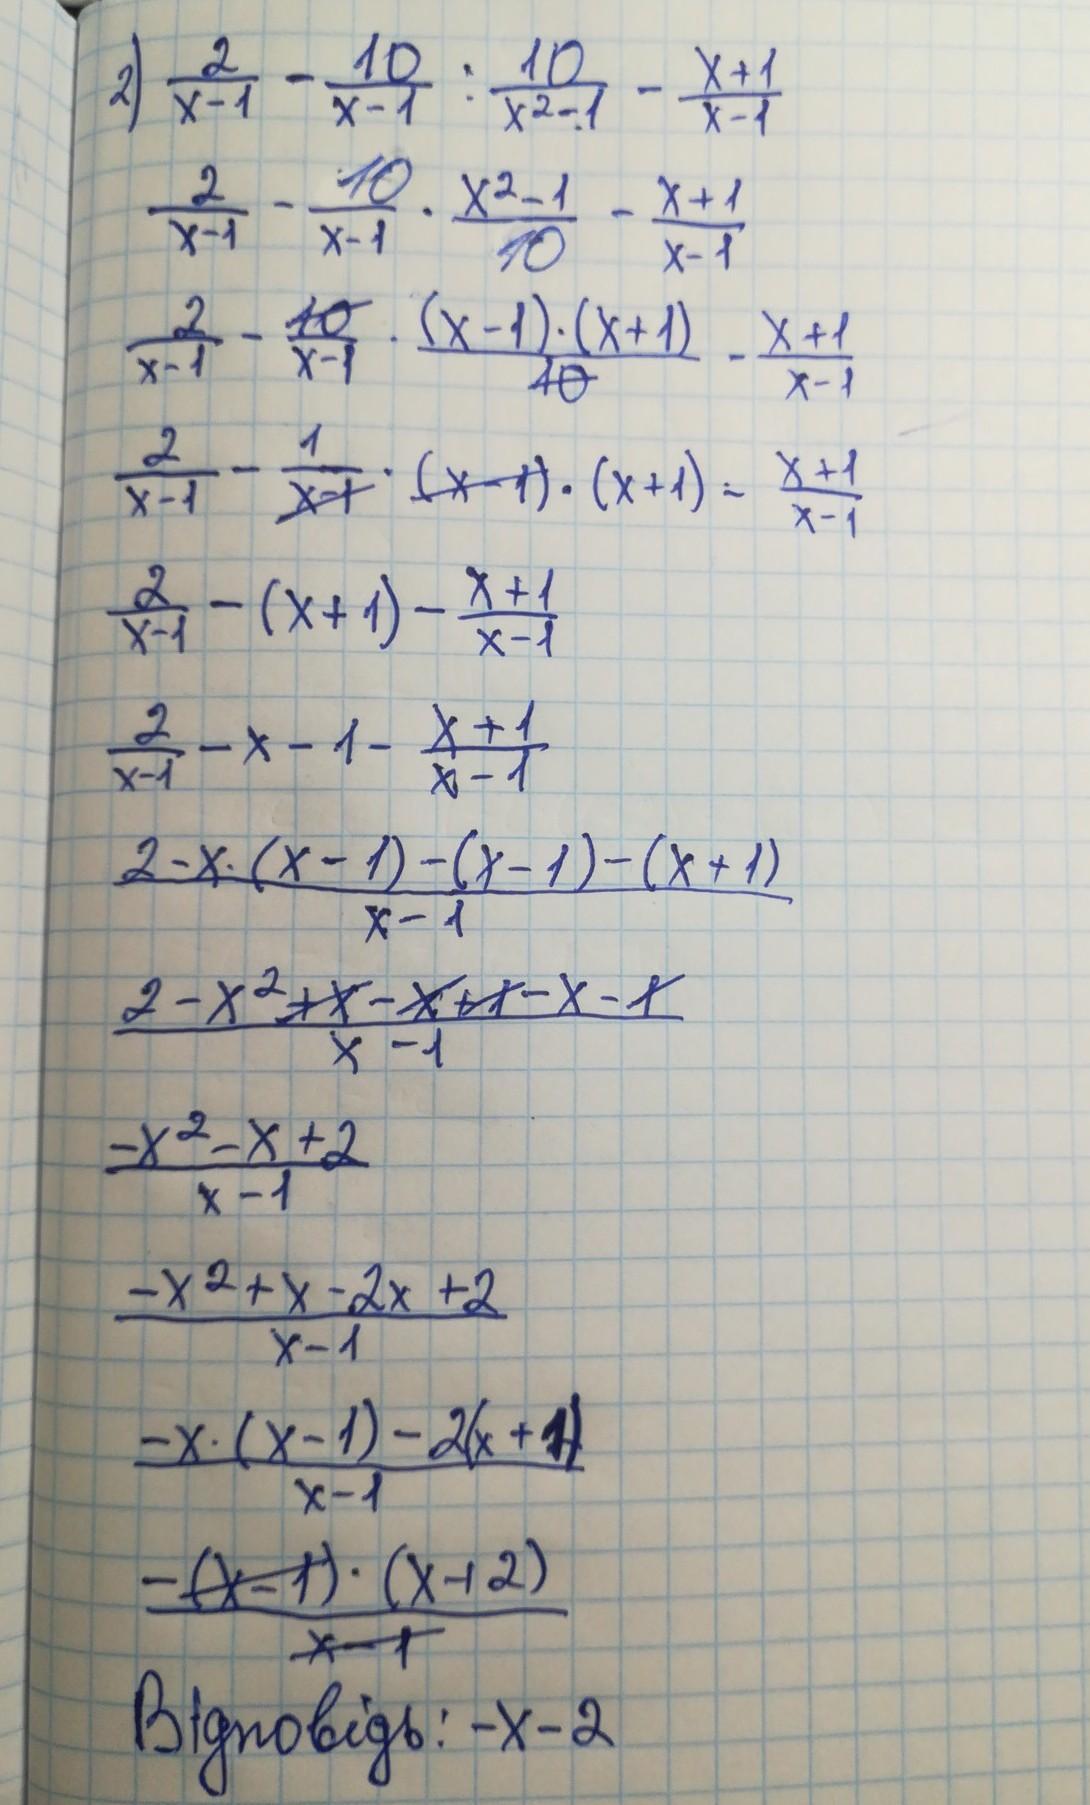 2) 2/(x-1) - 10/(x-1) : 10/(x²-1) - (x+1)/(x-1)
2/(x-1) - 10/(x-1) · (x²-1)/10 - (x+1)/(x-1)
2/(x-1) - 10/(x-1) · ((x-1)·(x+1))/10 - (x+1)/(x-1)
2/(x-1) - 1/(x-1) · (x-1)·(x+1) - (x+1)/(x-1)
2/(x-1) - (x+1) - (x+1)/(x-1)
2/(x-1) - x - 1 - (x+1)/(x-1)
(2-x·(x-1)-(x-1)-(x+1))/(x-1)
(2-x²+x-x+1-x-1)/(x-1)
(-x²-x+2)/(x-1)
(-x²+x-2x+2)/(x-1)
(-x·(x-1)-2(x+1))/(x-1)
(-(x-1)·(x+2))/(x-1)
Відповідь: -x-2